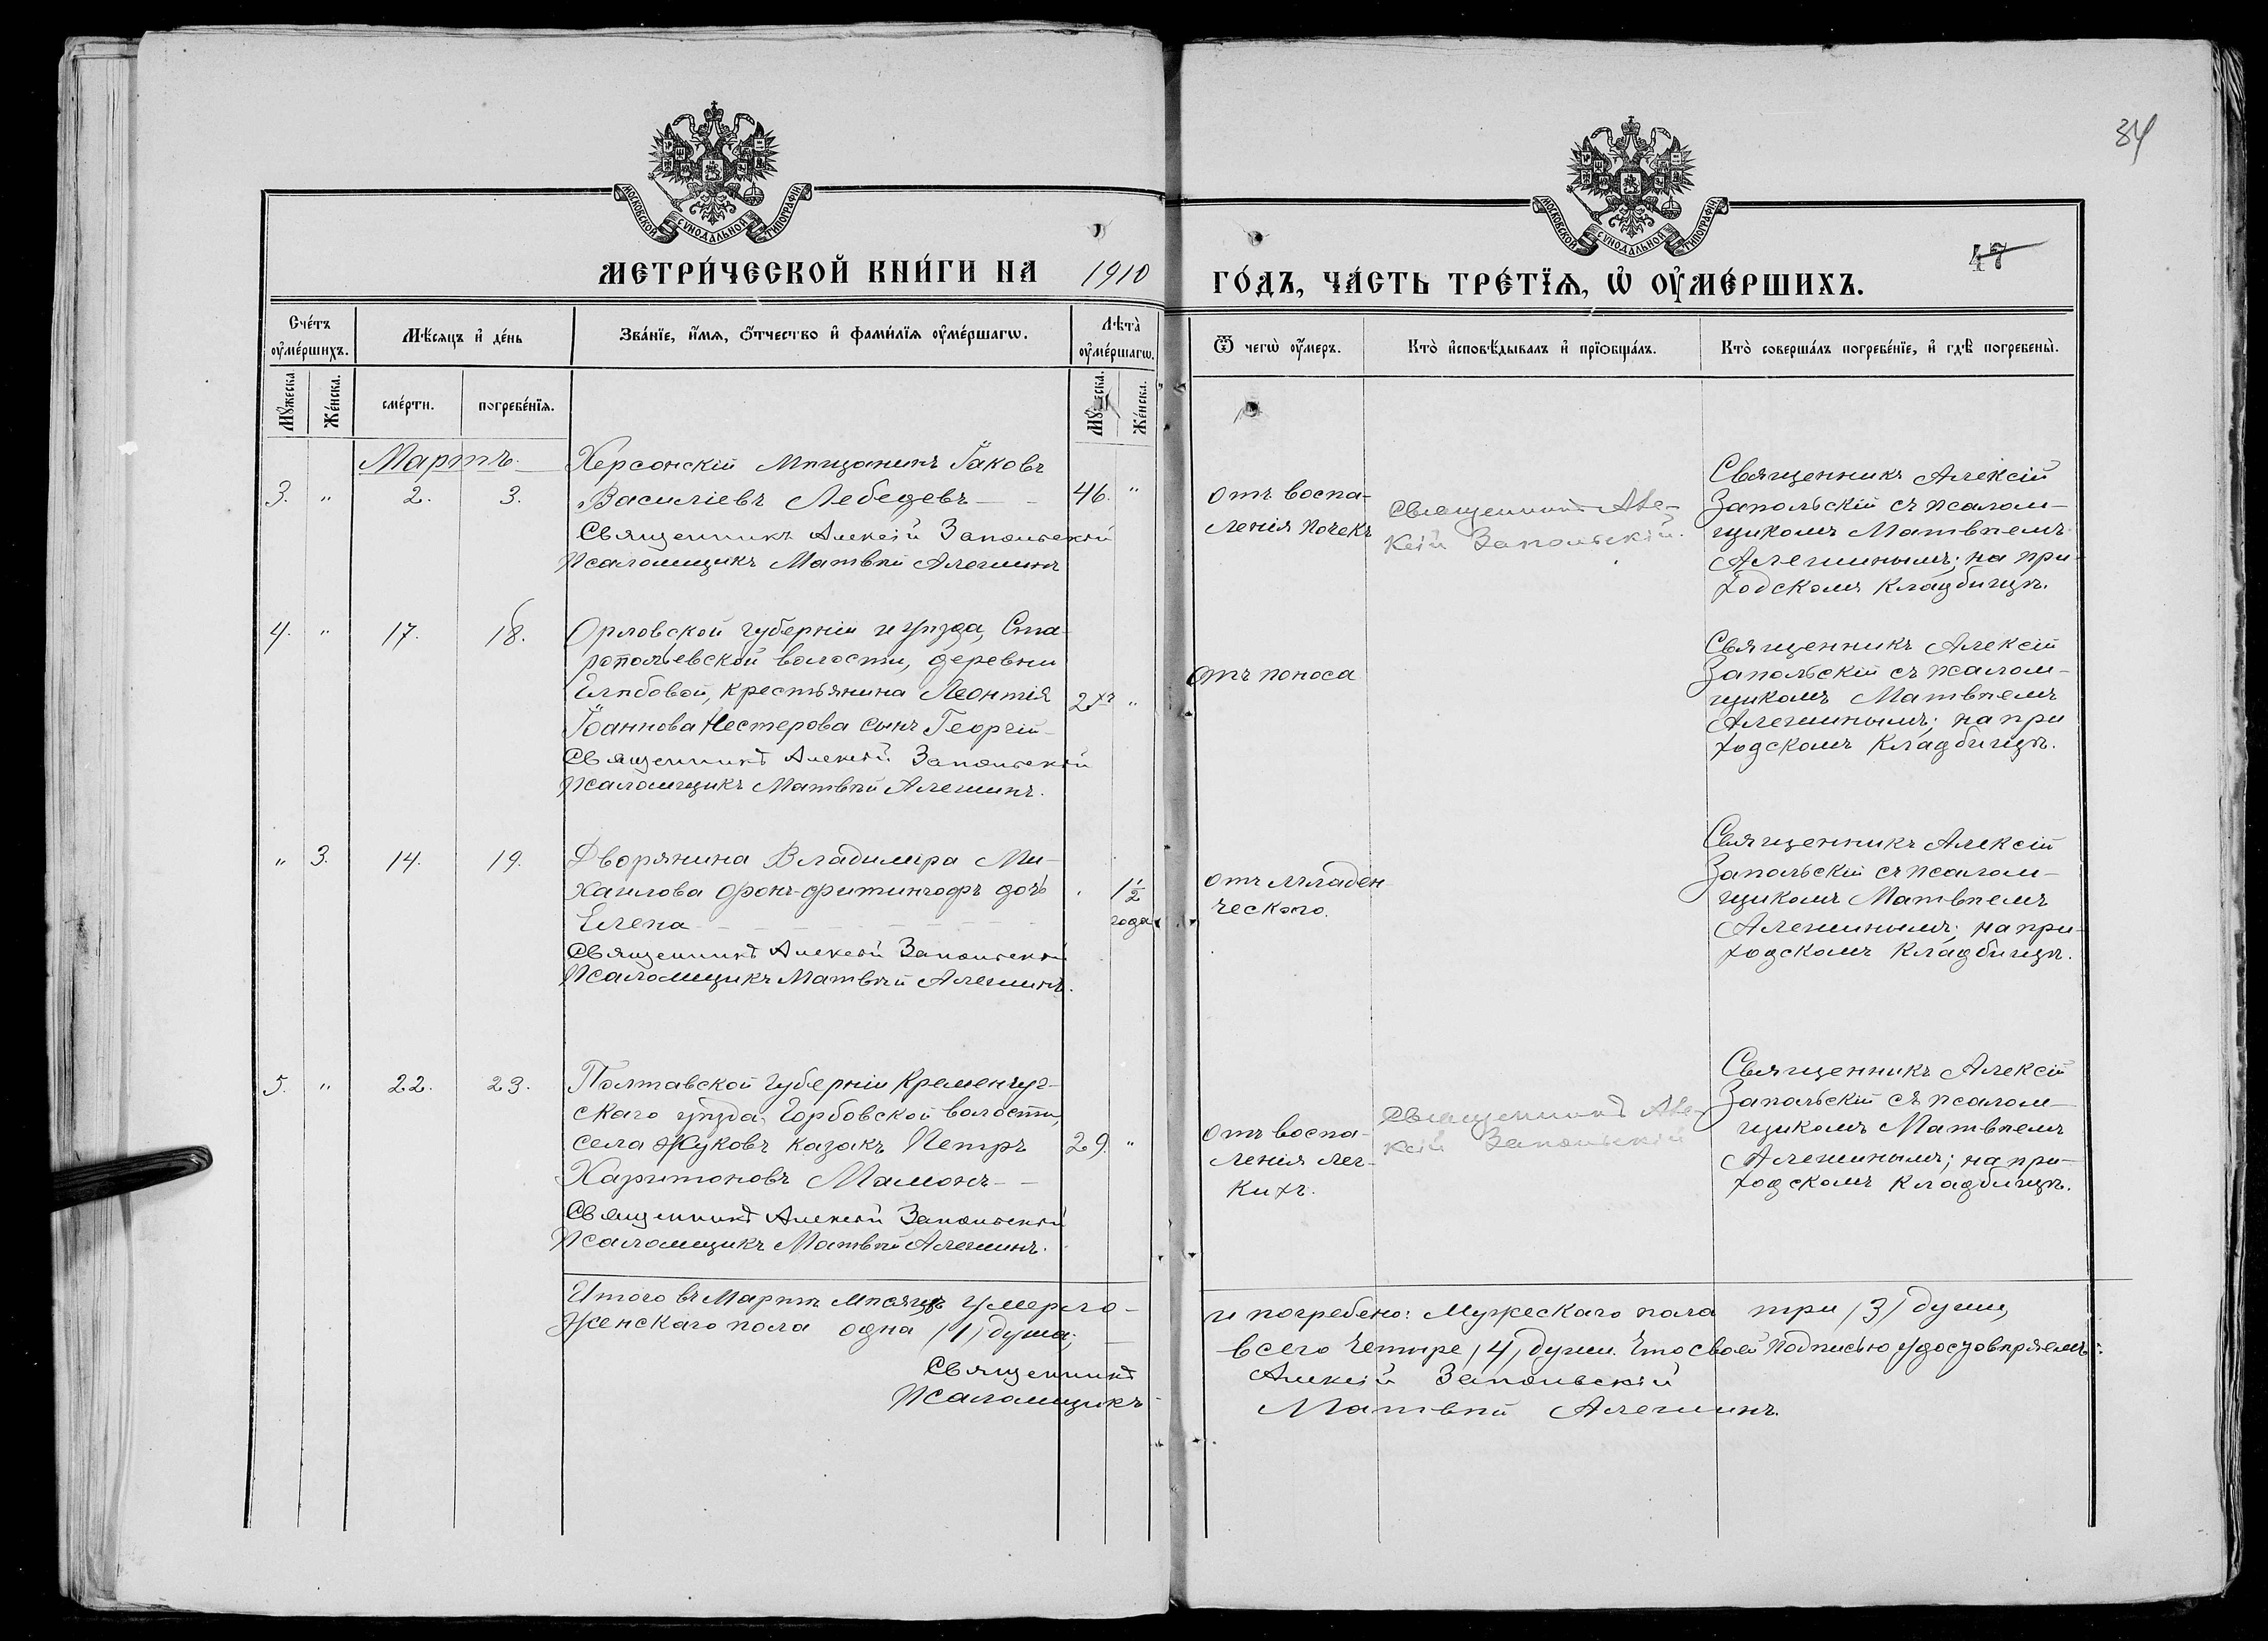 34
47
МОСКОВСКОЙ СѴНОДАЛЬНОЙ ТИПОГРАФІИ
МОСКОВСКОЙ СѴНОДАЛЬНОЙ ТИПОГРАФІИ
МЕТРИ́ЧЕСКОЙ КНИ́ГИ НА 1910 ГО́ДЪ, ЧА́СТЬ ТРЕ́ТЇѦ, Ѡ҆ ОУ҆МЕ́РШИХЪ.
Сче́тъ оу҆ме́ршихъ.
Мѣ́сяцъ и҆ де́нь
Зва́нїе, и҆́мѧ, ѻ҆́тчество и҆ фами́лїѧ оу҆ме́ршагѡ.
Лѣта̀ оу҆ме́ршагѡ.
Ѿ чегѡ̀ оу҆́меръ.
Кто̀ и҆сповѣ́дывалъ и҆ прїѡбща́лъ.
Кто̀ соверша́лъ погребе́нїе, и҆ гдѣ̀ погребены̀.
Мꙋ́жеска
Же́нска.
сме́рти.
погребе́нїѧ.
Мꙋ́жеска.
Же́нска.
Мартъ.
3. " 2. 3.
Херсонскій мѣщанинъ Іаковъ
Василіевъ Лебедевъ — 46. "
Священникъ Алексій Запольскій
Псаломщикъ Матвѣй Алешинъ
отъ воспа-
ленія почекъ
Священникъ Але-
ксій Запольскій.
Священникъ Алексій
Запольскій съ псалом-
щикомъ Матвѣемъ
Алешинымъ; на при-
ходскомъ кладбищѣ.
4. " 17. 18.
Орловской губерніи и уѣзда, Ста-
ропольевской волости, деревни
Глѣбовой, крестьянина Леонтія
Іоаннова Нестерова сынъ Георгій
2хъ "
Священникъ Алексій Запольскій
Псаломщикъ Матвѣй Алешинъ.
отъ поноса
Священникъ Алексій
Запольскій съ псалом-
щикомъ Матвѣемъ
Алешинымъ; на при
ходскомъ кладбищѣ.
" 3. 14. 19.
Дворянина Владиміра Ми-
хаилова фонъ-фитингофъ дочь
Елена
1½ года
Священникъ Алексій Запольскій
Псаломщикъ Матвѣй Алешинъ.
отъ младен
ческаго.
Священникъ Алексій
Запольскій съ псалом-
щикомъ Матвѣемъ
Алешинымъ; на при-
ходскомъ кладбищѣ.
5. " 22. 23.
Полтавской губерніи Кременчуг-
скаго уѣзда, Горбовской волости,
села Жуковъ казакъ Петръ
Харитоновъ Мамонъ —
29. "
Священникъ Алексій Запольскій
Псаломщикъ Матвѣй Алешинъ.
отъ воспа-
ленія лег-
кихъ.
Священникъ Але-
ксій Запольскій
Священникъ Алексій
Запольскій съ псалом-
щикомъ Матвѣемъ
Алешинымъ; на при-
ходскомъ кладбищѣ.
Итого въ Мартѣ мѣсяцѣ умерло и погребено: Мужескаго пола три /3/ души,
женскаго пола одна /1/ душа; всего четыре /4/ души. Что своей подписью удостовѣряемъ:
Священникъ Алексій Запольскій
Псаломщикъ Матвѣй Алешинъ.